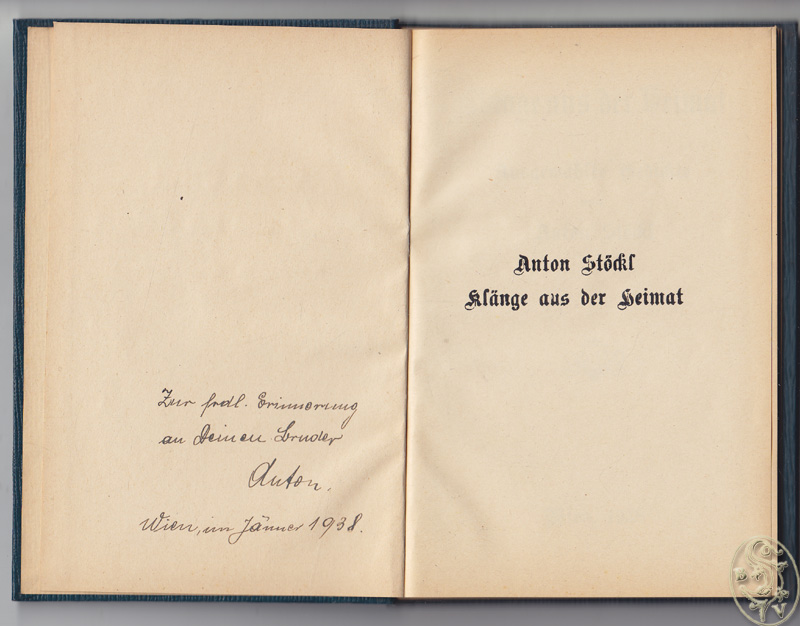 Zur frdl. Erinnerung
an Deinen Bruder
Anton.
Wien, im Jänner 1938.
Anton Stöckl
Klänge aus der Heimat